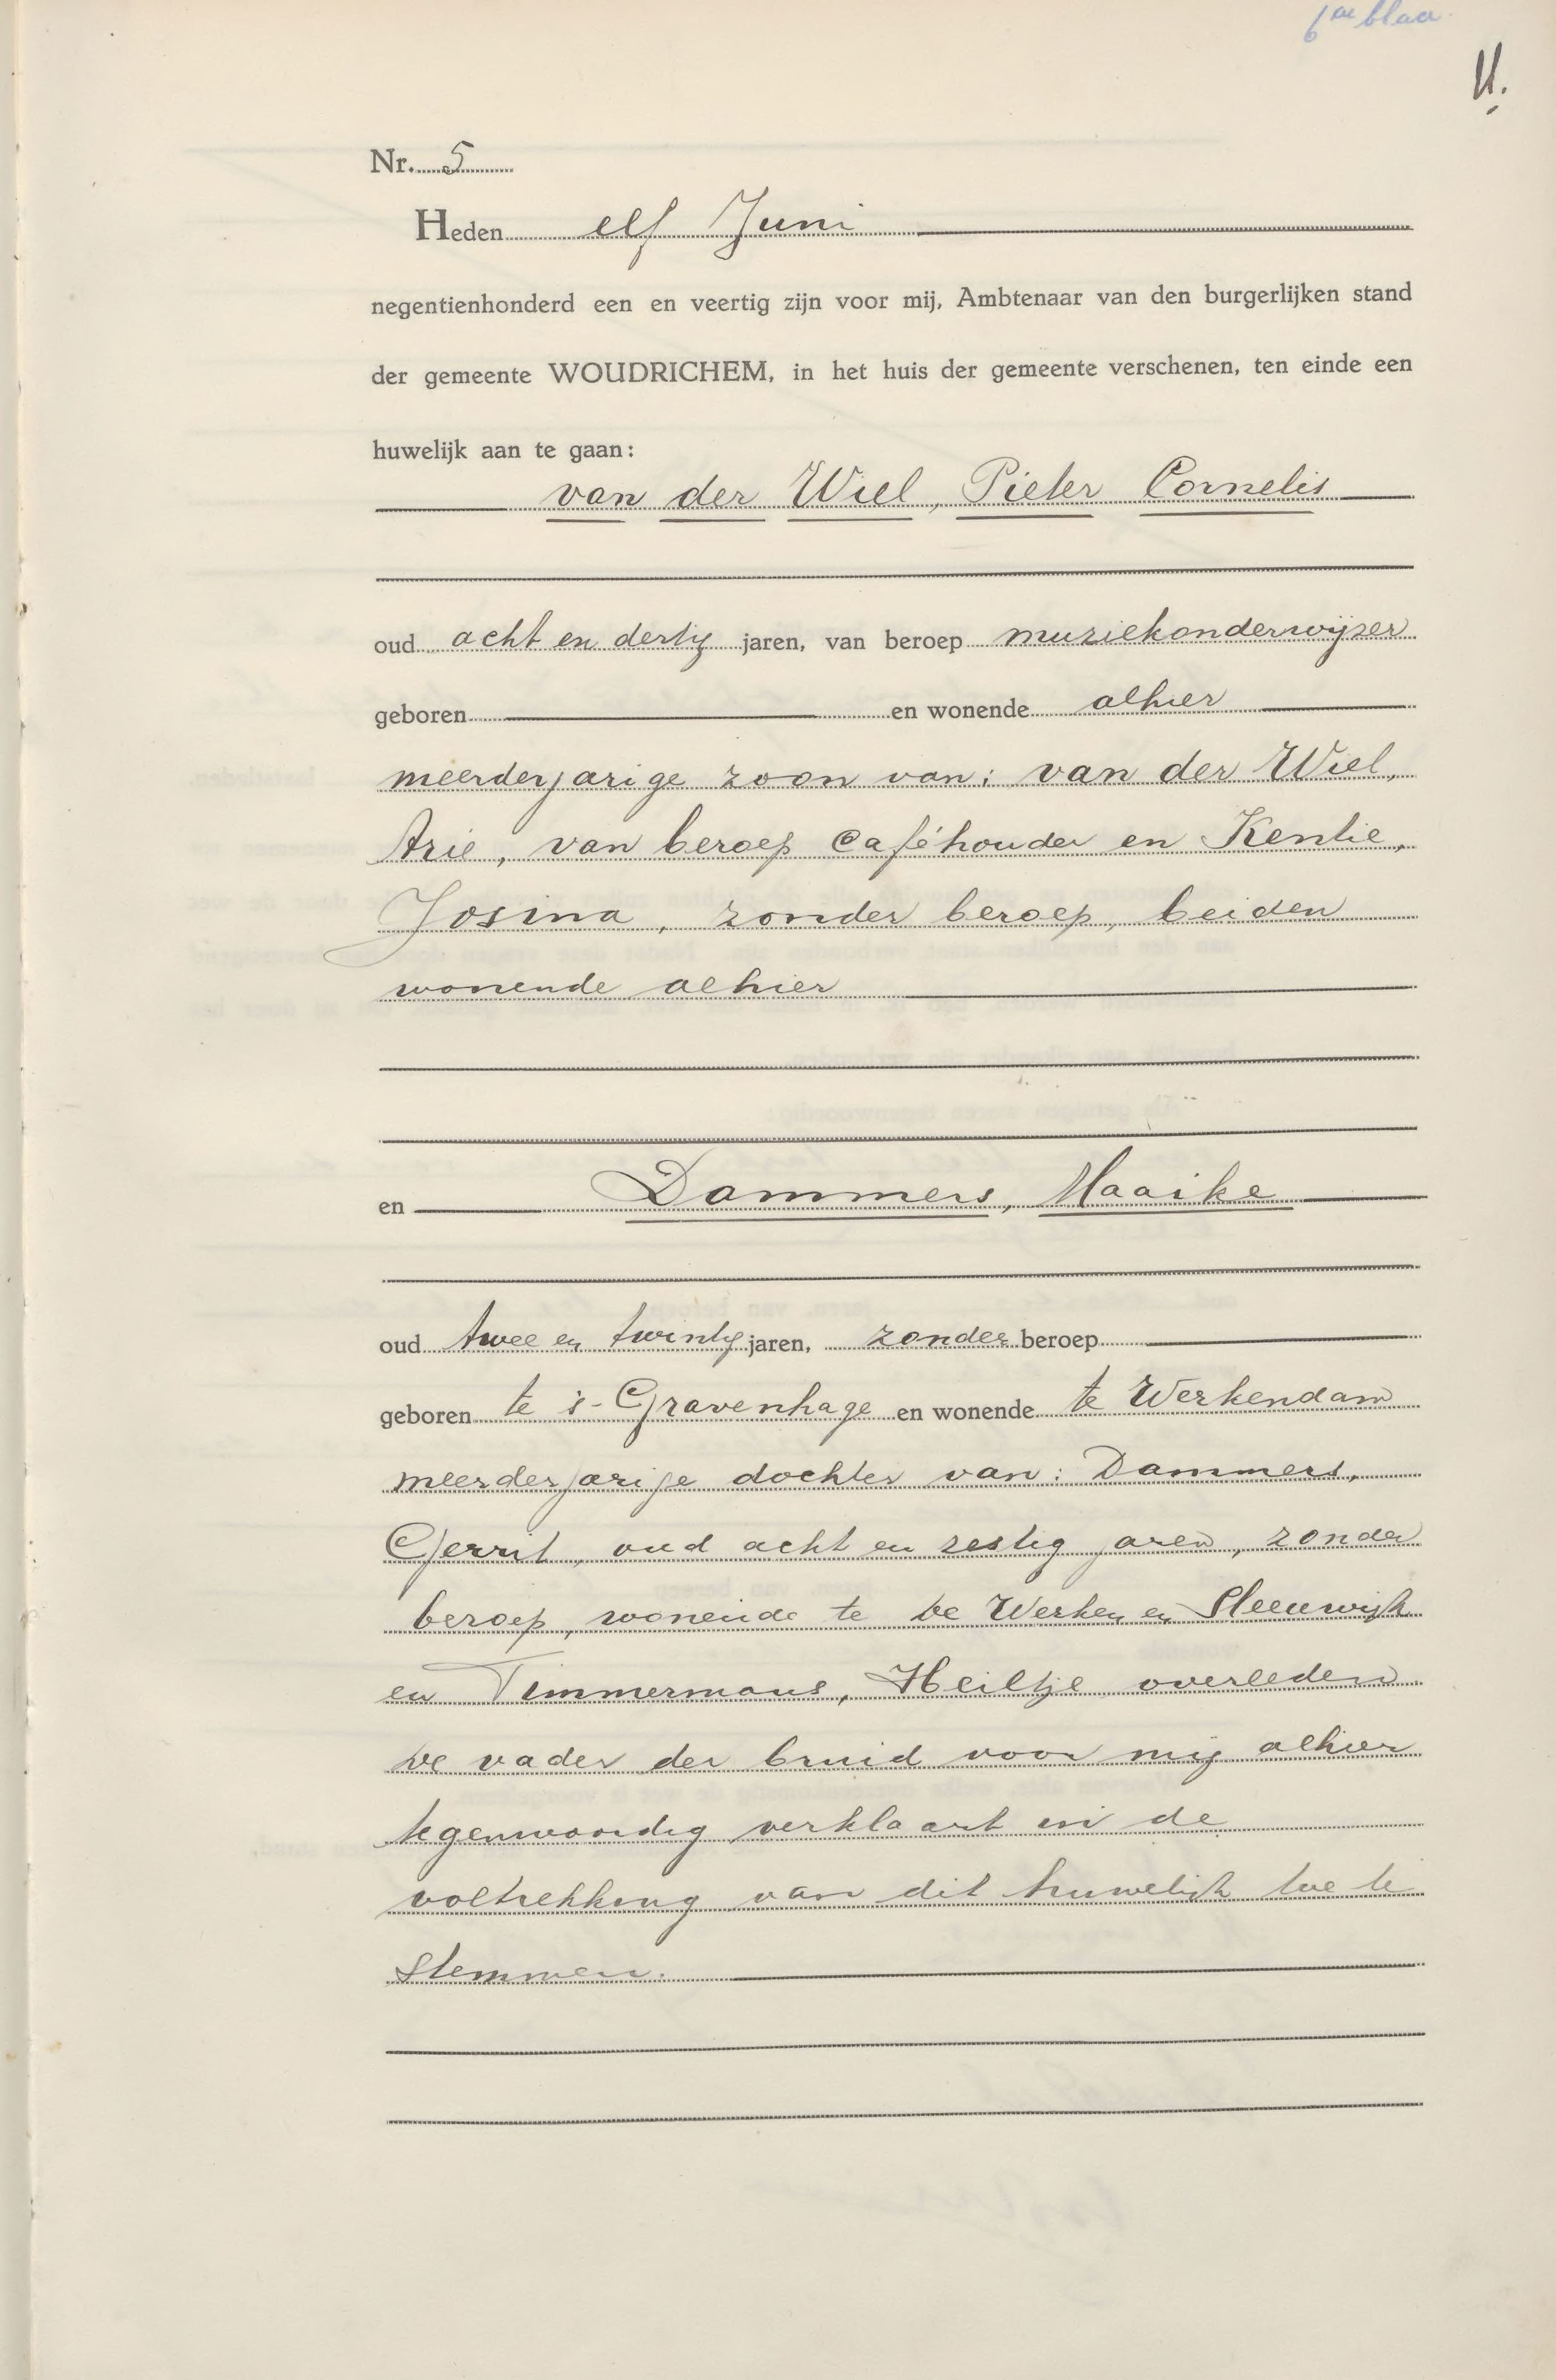 6de blad
Nr. 5
Heden elf Juni
negentienhonderd een en veertig zijn voor mij, Ambtenaar van den burgerlijken stand
der gemeente WOUDRICHEM, in het huis der gemeente verschenen, ten einde een
huwelijk aan te gaan:
van der Wiel, Pieter Cornelis
oud acht en dertig jaren, van beroep muziekonderwijzer
geboren en wonende alhier
meerderjarige zoon van: van der Wiel,
Arie, van beroep caféhouder en Kentie,
Josina, zonder beroep, beiden
wonende alhier
en Dammers, Maaike
oud twee en twintig jaren, zonder beroep
geboren te 's-Gravenhage en wonende te Werkendam
meerderjarige dochter van: Dammers,
Gerrit, oud acht en zestig jaren, zonder
beroep, wonende te de Werken en Sleeuwijk
en Timmermans, Heiltje overleden
de vader der bruid voor mij alhier
tegenwoordig verklaart in de
voltrekking van dit huwelijk toe te
stemmen.